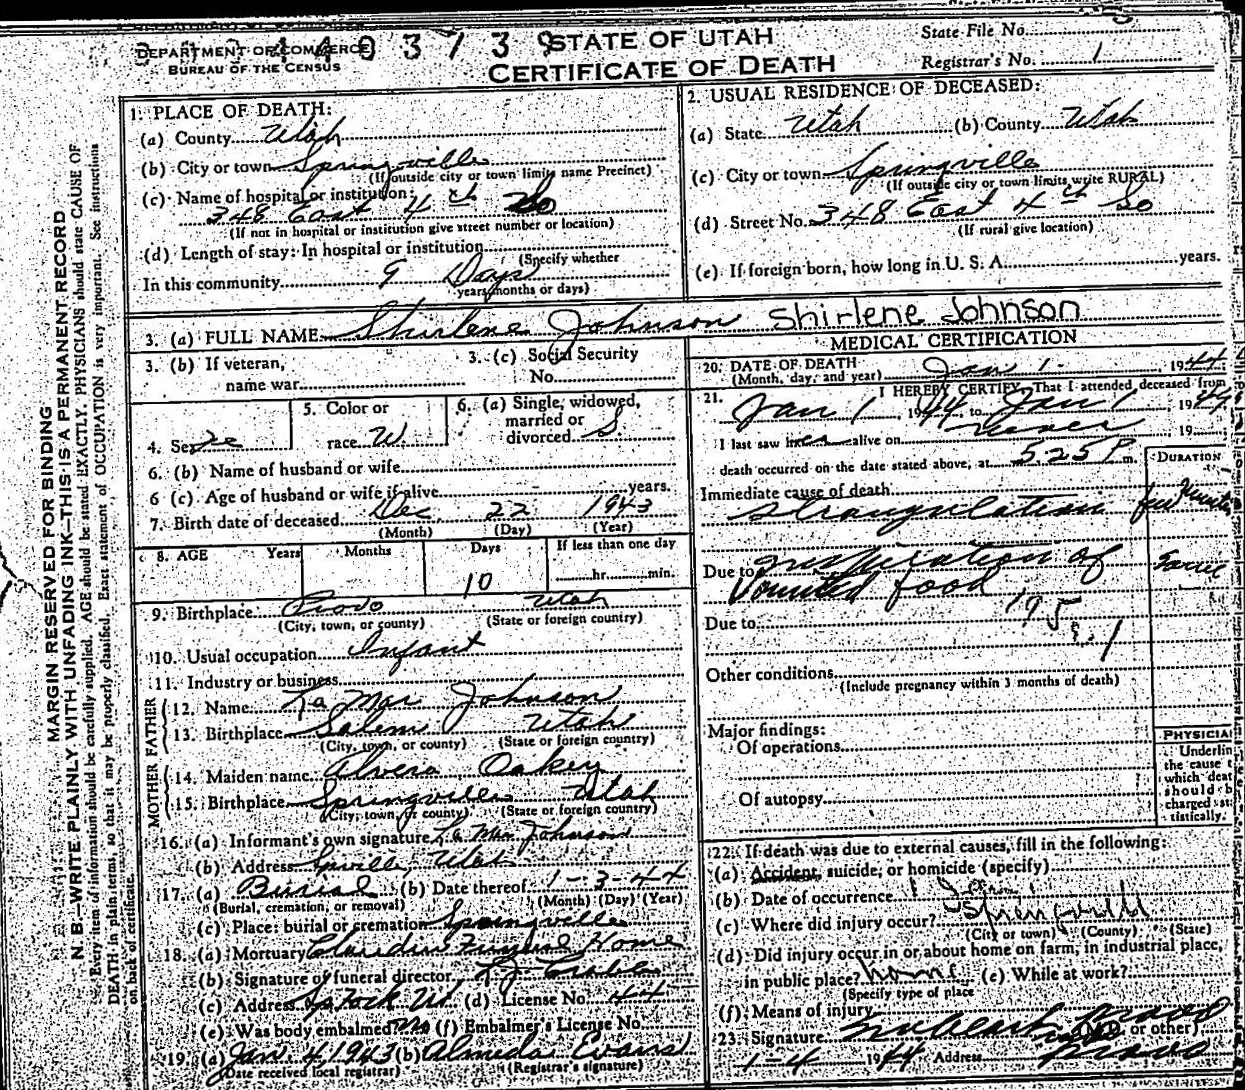 DEPARTMENT OF COMMERCE
BUREAU OF THE CENSUS
4 4 0 3 7 3 9
STATE OF UTAH
CERTIFICATE OF DEATH
State File No.
Registrar's No. 1
MARGIN RESERVED FOR BINDING
N. B.—WRITE PLAINLY WITH UNFADING INK—THIS IS A PERMANENT RECORD
Every item of information should be carefully supplied. AGE should be stated EXACTLY. PHYSICIANS should state CAUSE OF
DEATH in plain terms, so that it may be properly classified. Exact statement of OCCUPATION is very important. See instructions
on back of certificate.
1. PLACE OF DEATH:
(a) County Utah
(b) City or town Springville
(If outside city or town limits name Precinct)
(c) Name of hospital or institution:
348 East 4th So
(If not in hospital or institution give street number or location)
(d) Length of stay: In hospital or institution
(Specify whether
In this community 9 Days
years, months or days)
2. USUAL RESIDENCE OF DECEASED:
(a) State Utah (b) County Utah
(c) City or town Springville
(If outside city or town limits write RURAL)
(d) Street No. 348 East 4th So
(If rural give location)
(e) If foreign born, how long in U. S. A. years.
3. (a) FULL NAME Shirlene Johnson Shirlene Johnson
3. (b) If veteran,
name war
3. (c) Social Security
No.
4. Sex
5. Color or
race W
6. (a) Single, widowed,
married or
divorced S
6. (b) Name of husband or wife
6 (c) Age of husband or wife if alive years.
7. Birth date of deceased Dec 22 1943
(Month) (Day) (Year)
8. AGE Years Months Days If less than one day
10 hr. min.
9. Birthplace Provo Utah
(City, town, or county) (State or foreign country)
10. Usual occupation Infant
11. Industry or business
FATHER
12. Name La Mar Johnson
13. Birthplace Salem Utah
(City, town, or county) (State or foreign country)
MOTHER
14. Maiden name Alvera Oakey
15. Birthplace Springville Utah
(City, town, or county) (State or foreign country)
16. (a) Informant's own signature La Mar Johnson
(b) Address Spville, Utah
17. (a) Burial (b) Date thereof 1-3-44
(Burial, cremation, or removal) (Month) (Day) (Year)
(c) Place: burial or cremation Springville
18. (a) Mortuary Home
(b) Signature of funeral director
(c) Address (d) License No. 44
(e) Was body embalmed No (f) Embalmer's License No.
19. (a) Jan 4 1943 (b) Almeda Evans
(Date received local registrar) (Registrar's signature)
MEDICAL CERTIFICATION
20. DATE OF DEATH
(Month, day, and year) Jan 1 1944
21. I HEREBY CERTIFY, That I attended deceased from
Jan 1 1944, to Jan 1 1944
I last saw her alive on never 19
death occurred on the date stated above, at 525 P m.
DURATION
Immediate cause of death
strangulation few minutes
Due to inspiration of
Vomited food
195
1
Due to
Other conditions
(Include pregnancy within 3 months of death)
Major findings:
Of operations
Of autopsy
PHYSICIA
Underlin
the cause t
which deat
should b
charged sta
tistically.
22. If death was due to external causes, fill in the following:
(a) Accident, suicide, or homicide (specify)
(b) Date of occurrence 1 Jan
(c) Where did injury occur? Springvill
(City or town) (County) (State)
(d) Did injury occur in or about home on farm, in industrial place,
in public place? home (e) While at work?
(Specify type of place
(f) Means of injury
23. Signature (M.D. or other)
1-4 1944 Address Provo